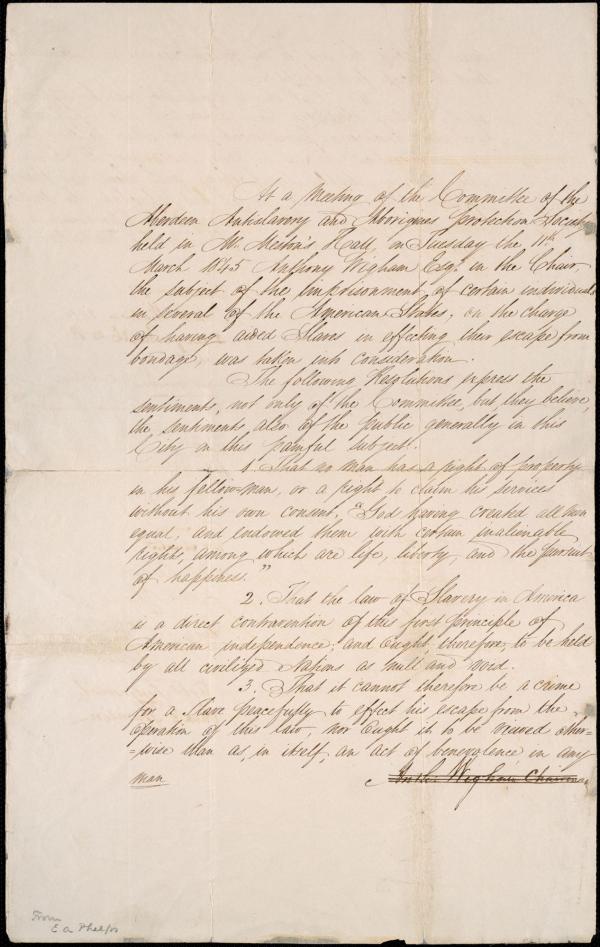 At a Meeting of the Committee of the
Aberdeen Antislavery and Aborigines Protection Society
held in Mr. Meston's Hall, on Tuesday the, 11th
March 1845 Anthony Wigham Esqr. in the Chair,
the subject of the imprisonment of certain individuals
in several of the American States, on the charge
of having aided Slaves in effecting their escape from
bondage, was taken into consideration.
The following Resolutions express the
sentiments, not only of the Committee, but, they believe,
the sentiments, also of the public generally in this
City on this painful subject.
1. That no man has a right of property
in his fellow-man, or a right to claim his services
without his own consent, "God having created all men
equal, and endowed them with certain inalienable
rights, among which are life, liberty, and the pursuit
of happiness."
2. That the law of Slavery in America
is a direct contravention of this first principle of
American independence; and ought, therefore, to be held
by all civilized Nations as null and void.
3. That it cannot therefore be a crime
for a Slave peacefully to effect his escape from the
operation of this law, nor ought it to be viewed other=
=wise than as, in itself, an act of benevolence in any
man.
Anth. Wigham Chairman
From
E A Phelps